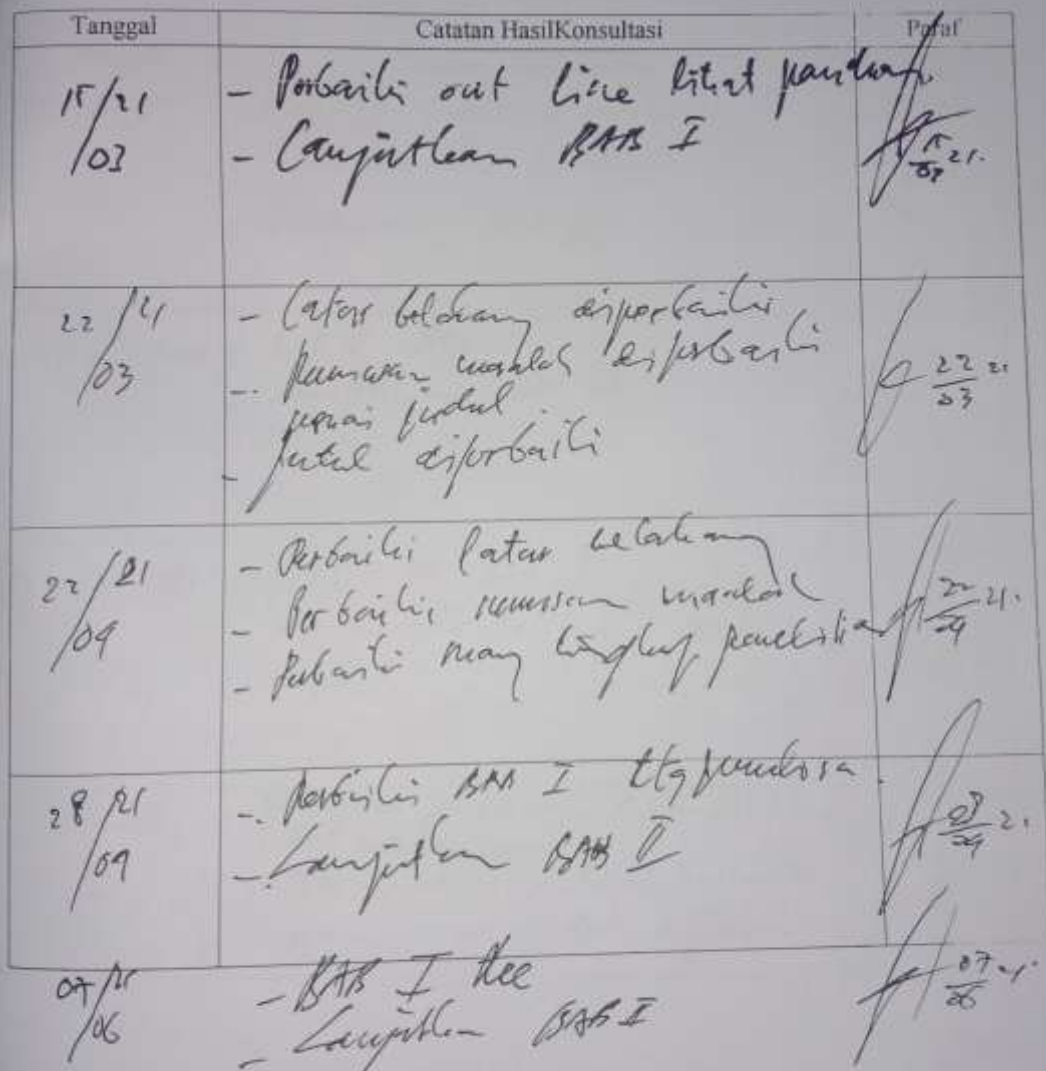 Tanggal Catatan HasilKonsultasi Paraf
15/21
/03
- Perbaiki out line lihat panduan
- Lanjutkan BAB I
15
03 21.
22/21
/03
- Latar belakang diperbaiki
- Rumusan masalah diperbaiki
sesuai judul
- Judul diperbaiki
22
03 21
22/21
/04
- Perbaiki latar belakang
- Perbaiki rumusan masalah
- Perbaiki ruang lingkup penelitian
22
04 21.
28/21
/04
- Perbaiki BAB I ttg
- Lanjutkan BAB II
28
04 21
07/21
/06
- BAB I Acc
- Lanjutkan BAB II
07
06 21